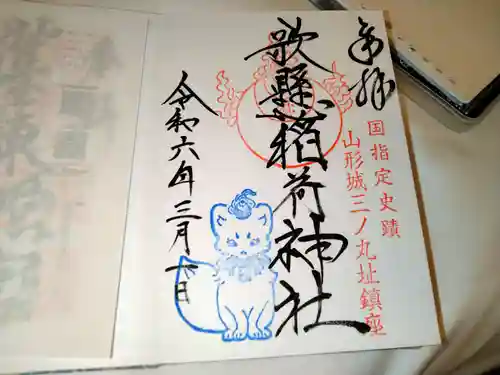 奉拝
国指定史蹟
山形城三ノ丸址鎮座
歌懸稲荷神社
令和六年三月 日